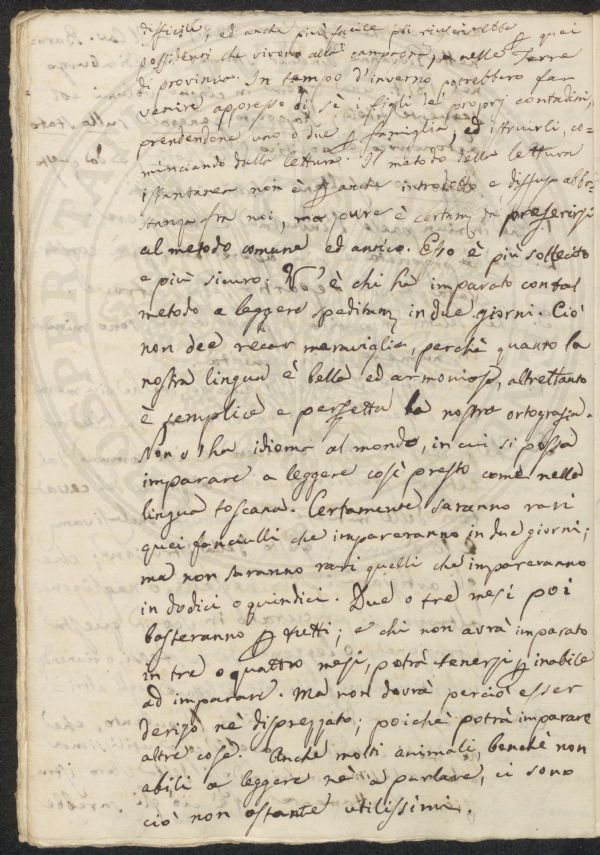 difficile, ed anche più facile poi riuscirebbe ꝑ quei
possidenti che vivono alla campagna, e nelle Terre
di provincia. In tempo d'inverno potrebbero far
venire appresso di sè i figli de' proprj contadini,
prendendone uno o due ꝑ famiglia, ed istruirli, co-
minciando dalla lettura. Il metodo della lettura
istantanea non è ꝑ anche introdotto e diffuso abba-
stanza fra noi, ma pure è certam. da preferirsi
al metodo comune ed antico. Esso è più sollecito
e più sicuro; V' è chi ha imparato con tal
metodo a leggere speditam. in due giorni. Ciò
non dee recar maraviglia, perchè quanto la
nostra lingua è bella ed armoniosa, altrettanto
è semplice e perfetta la nostra ortografia.
Non v'ha idioma al mondo, in cui si possa
imparare a leggere così presto come nella
lingua toscana. Certamente saranno rari
quei fanciulli che impareranno in due giorni;
ma non saranno rari quelli che impareranno
in dodici o quindici. Due o tre mesi poi
basteranno ꝑ tutti; e chi non avrà imparato
in tre o quattro mesi, potrà tenersi ꝑ inabile
ad imparare. Ma non dovrà perciò esser
deriso nè disprezzato; poichè potrà imparare
altre cose. Anche molti animali, benchè non
abili a leggere nè a parlare, ci sono
ciò non ostante utilissimi.